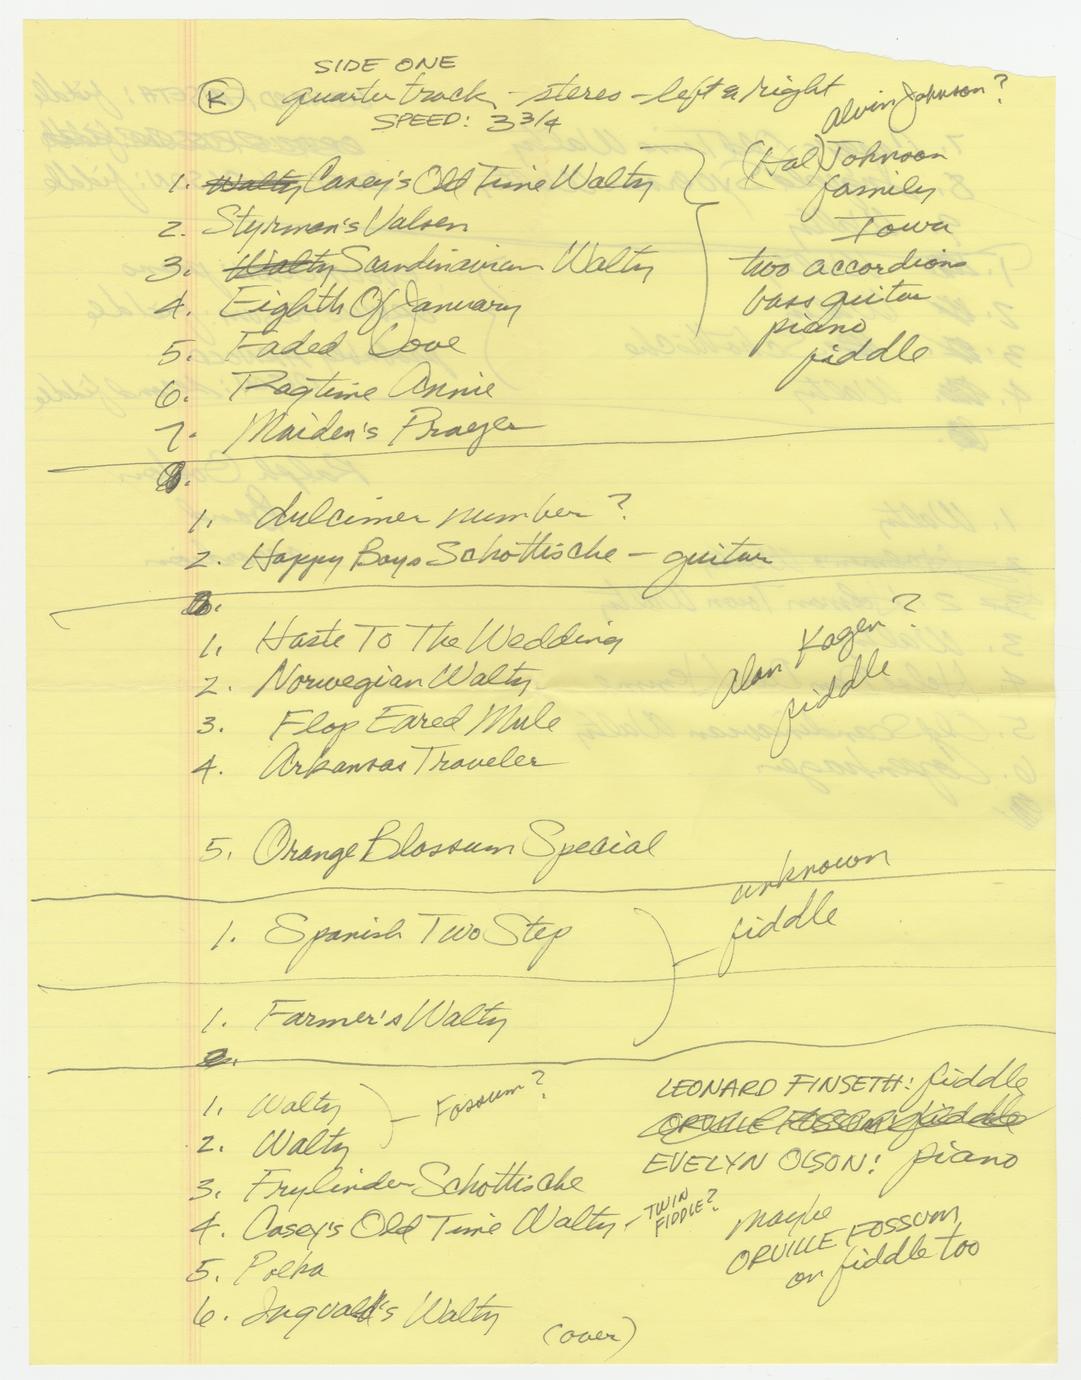 SIDE ONE
K quarter track - stereo - left & right
SPEED: 3 3/4
Alvin Johnson?
(Hal) Johnson
family
Iowa
two accordions
bass guitar
piano
fiddle
1. Waltz Casey's Old Time Waltz
2. Styrman's Valsen
3. Waltz Scandinavian Waltz
4. Eighth Of January
5. Faded Love
6. Ragtime Annie
7. Maiden's Prayer
8.
1. dulcimer number?
2. Happy Boys Schottische - guitar
1. Haste To The Wedding
2. Norwegian Waltz
3. Flop Eared Mule
4. Arkansas Traveler
Alan Kagen?
fiddle
5. Orange Blossum Special
unknown
fiddle
1. Spanish Two Step
1. Farmer's Waltz
2.
1. Waltz
2. Waltz
Fossum?
3. Frylinder Schottische
4. Casey's Old Time Waltz - TWIN
FIDDLE?
5. Polka
6. Ingvald's Waltz
LEONARD FINSETH: fiddle
ORVILLE FOSSUM: fiddle
EVELYN OLSON: piano
maybe
ORVILLE FOSSUM
on fiddle too
(over)